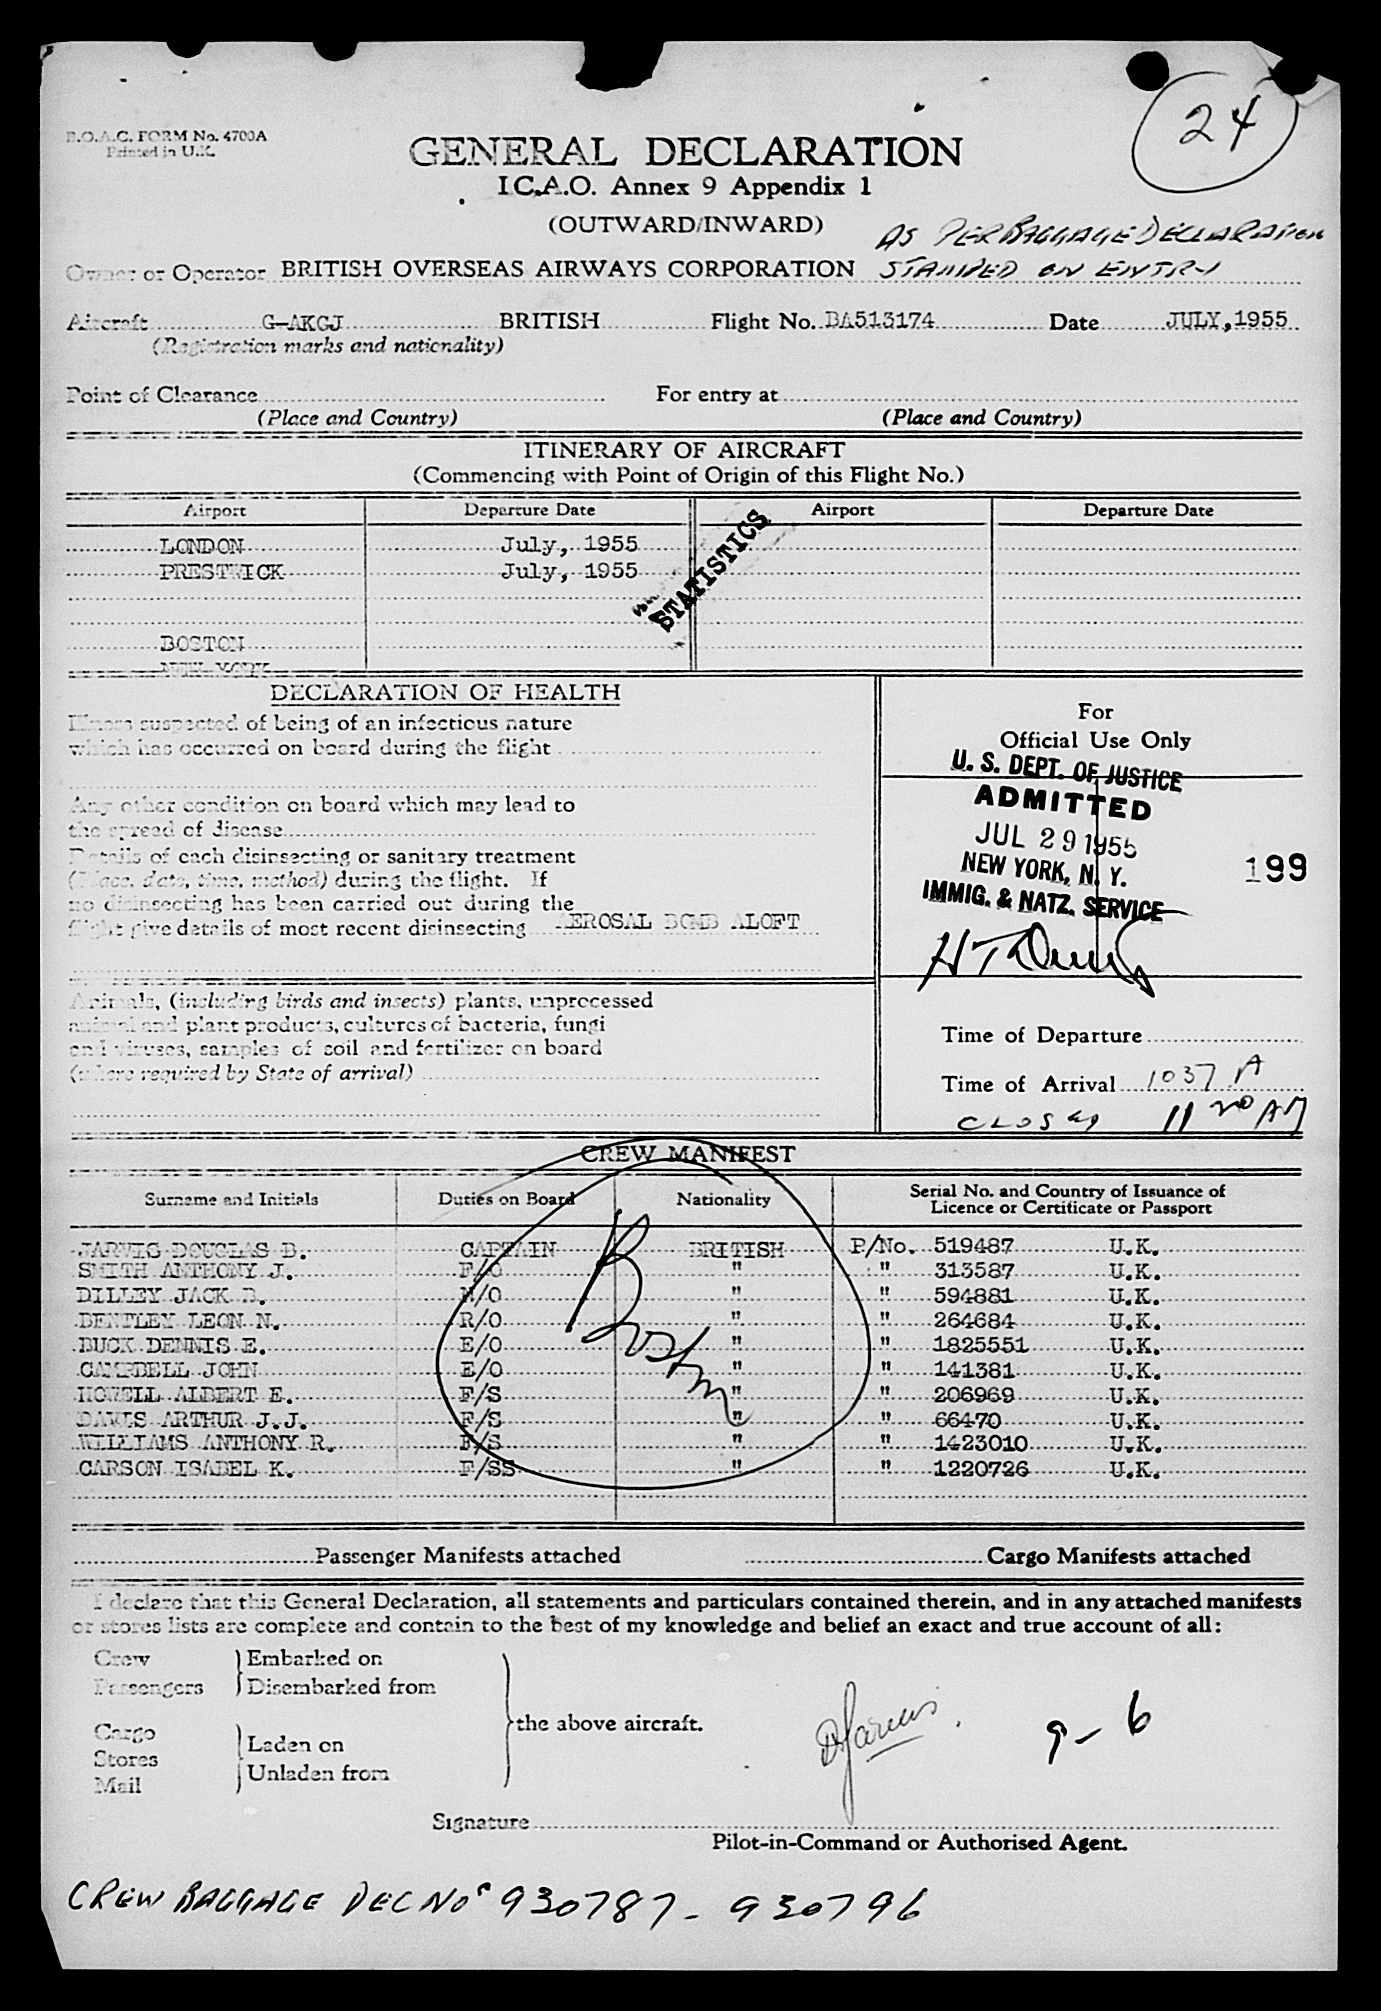 24
B.O.A.C. FORM No. 4700A
Printed in U.K.
GENERAL DECLARATION
I.C.A.O. Annex 9 Appendix 1
(OUTWARD/INWARD)
AS PER BAGGAGE DECLARATION
Owner or Operator BRITISH OVERSEAS AIRWAYS CORPORATION STAMPED ON ENTRY
Aircraft G-AKGJ BRITISH Flight No. BA513174 Date JULY, 1955
(Registration marks and nationality)
Point of Clearance For entry at
(Place and Country) (Place and Country)
ITINERARY OF AIRCRAFT
(Commencing with Point of Origin of this Flight No.)
Airport Departure Date Airport Departure Date
LONDON July, 1955
PRESTWICK July, 1955
STATISTICS
BOSTON
NEW YORK
DECLARATION OF HEALTH
Illness suspected of being of an infectious nature
which has occurred on board during the flight
Any other condition on board which may lead to
the spread of disease
Details of each disinsecting or sanitary treatment
(Place, date, time, method) during the flight. If
no disinsecting has been carried out during the
flight give details of most recent disinsecting AEROSAL BOMB ALOFT
For
Official Use Only
U. S. DEPT. OF JUSTICE
ADMITTED
JUL 29 1955
NEW YORK, N. Y.
IMMIG. & NATZ. SERVICE
199
Animals, (including birds and insects) plants, unprocessed
animal and plant products, cultures of bacteria, fungi
and viruses, samples of soil and fertilizer on board
(where required by State of arrival)
Time of Departure
Time of Arrival 1037 A
CLOSED 11 20 AM
CREW MANIFEST
Surname and Initials Duties on Board Nationality Serial No. and Country of Issuance of
Licence or Certificate or Passport
JARVIS DOUGLAS B. CAPTAIN BRITISH P/No. 519487 U.K.
SMITH ANTHONY J. F/O " " 313587 U.K.
DILLEY JACK B. N/O " " 594881 U.K.
BENTLEY LEON N. R/O " " 264684 U.K.
BUCK DENNIS E. E/O " " 1825551 U.K.
CAMPBELL JOHN E/O " " 141381 U.K.
HOWELL ALBERT E. F/S " " 206969 U.K.
DAVIS ARTHUR J.J. F/S " " 66470 U.K.
WILLIAMS ANTHONY R. F/S " " 1423010 U.K.
CARSON ISABEL K. F/SS " " 1220726 U.K.
Boston
Passenger Manifests attached Cargo Manifests attached
I declare that this General Declaration, all statements and particulars contained therein, and in any attached manifests
or stores lists are complete and contain to the best of my knowledge and belief an exact and true account of all:
Crew Embarked on
Passengers Disembarked from
the above aircraft.
Cargo
Stores Laden on
Mail Unladen from
DJarvis. 9-6
Signature
Pilot-in-Command or Authorised Agent.
CREW BAGGAGE DEC Nos 930787 - 930796